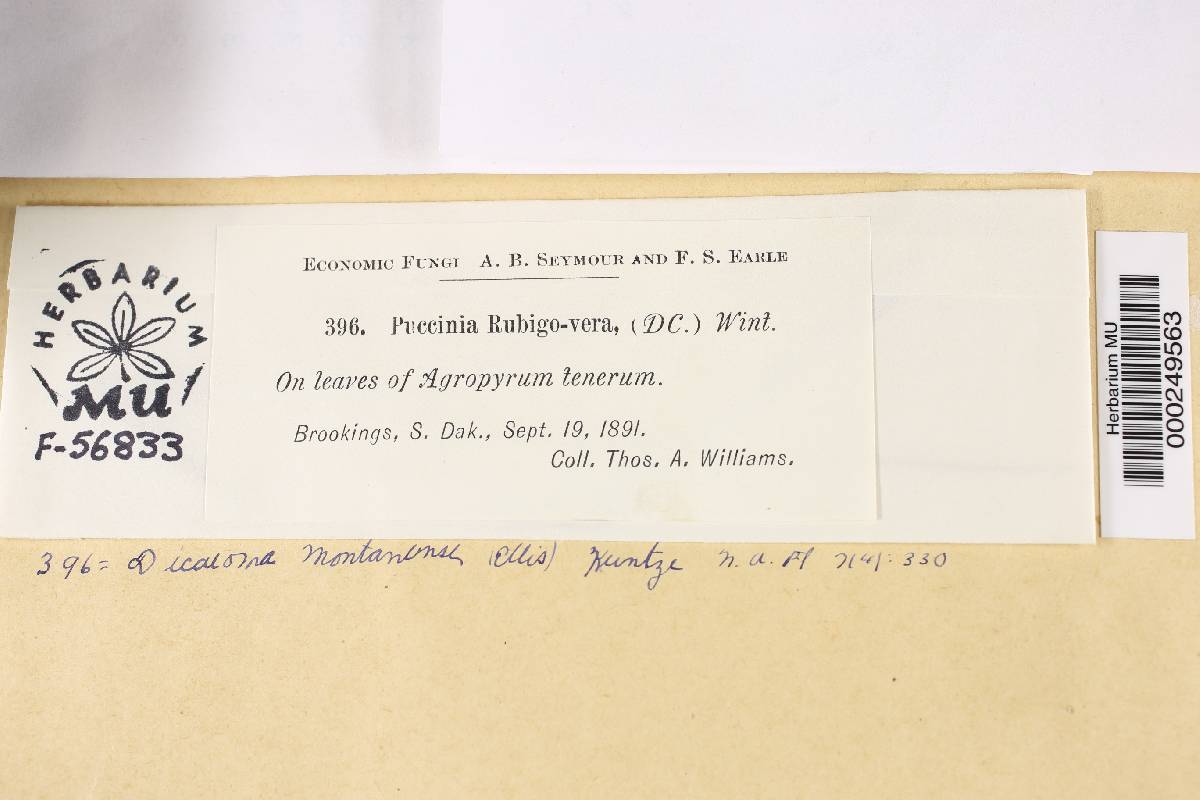 HERBARIUM
MU
F-56833
ECONOMIC FUNGI A. B. SEYMOUR AND F. S. EARLE
396. Puccinia Rubigo-vera, (DC.) Wint.
On leaves of Agropyrum tenerum.
Brookings, S. Dak., Sept. 19, 1891.
Coll. Thos. A. Williams.
Herbarium MU
000249563
396= Dicaeoma Montanense (Ellis) Kuntze N. A. Fl 7(4): 330